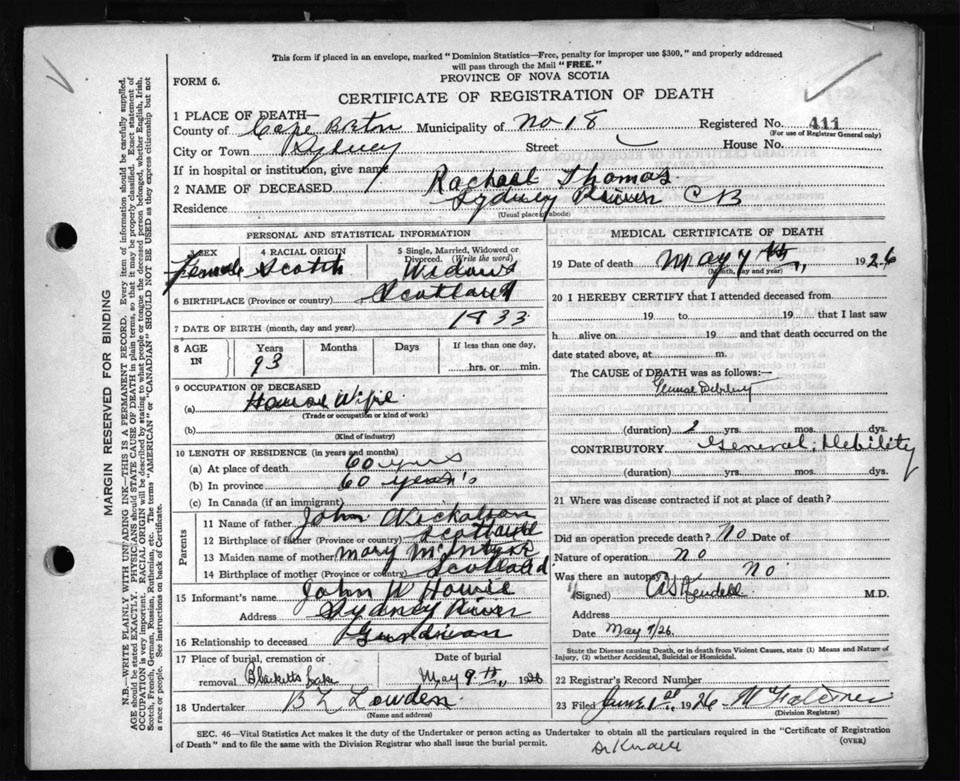 This form if placed in an envelope, marked "Dominion Statistics—Free, penalty for improper use $300," and properly addressed
will pass through the Mail "FREE."
FORM 6.
PROVINCE OF NOVA SCOTIA
CERTIFICATE OF REGISTRATION OF DEATH
1 PLACE OF DEATH—
County of Cape Breton Municipality of No 18 Registered No. 411
(For use of Registrar General only)
City or Town Sydney Street House No.
If in hospital or institution, give name
2 NAME OF DECEASED Rachael Thomas
Residence Sydney River CB
(Usual place of abode)
PERSONAL AND STATISTICAL INFORMATION
3 SEX 4 RACIAL ORIGIN 5 Single, Married, Widowed or
Divorced. (Write the word)
Female Scotch Widow
6 BIRTHPLACE (Province or country) Scotland
7 DATE OF BIRTH (month, day and year) 1833
8 AGE IN Years Months Days If less than one day,
93 hrs. or min.
9 OCCUPATION OF DECEASED
(a) House Wife
(Trade or occupation or kind of work)
(b)
(Kind of industry)
10 LENGTH OF RESIDENCE (in years and months)
(a) At place of death 60 yrs
(b) In province 60 year's
(c) In Canada (if an immigrant)
Parents
11 Name of father John Nickolson
12 Birthplace of father (Province or country) Scotland
13 Maiden name of mother Mary McIntyre
14 Birthplace of mother (Province or country) Scotland
15 Informant's name John W Howie
Address Sydney River
16 Relationship to deceased
17 Place of burial, cremation or Date of burial
removal Blacketts Lake May 9th, 1926
18 Undertaker B L Lowden
(Name and address)
MEDICAL CERTIFICATE OF DEATH
19 Date of death May 7th, 1926
(Month, day and year)
20 I HEREBY CERTIFY that I attended deceased from
19 to 19 that I last saw
h alive on 19 and that death occurred on the
date stated above, at m.
The CAUSE of DEATH was as follows:—
General Debility
(duration) 2 yrs. mos. dys.
CONTRIBUTORY General Debility
(duration) yrs. mos. dys.
21 Where was disease contracted if not at place of death?
Did an operation precede death? No Date of
Nature of operation no
Was there an autopsy no
(Signed) AS Kendall M.D.
Address
Date May 9/26.
State the Disease causing Death, or in death from Violent Causes, state (1) Means and Nature of
Injury, (2) whether Accidental, Suicidal or Homicidal.
22 Registrar's Record Number
23 Filed June 1st, 1926
(Division Registrar)
SEC. 46—Vital Statistics Act makes it the duty of the Undertaker or person acting as Undertaker to obtain all the particulars required in the "Certificate of Registration
of Death" and to file the same with the Division Registrar who shall issue the burial permit. (OVER)
Dr Kendall
MARGIN RESERVED FOR BINDING
N.B.—WRITE PLAINLY WITH UNFADING INK—THIS IS A PERMANENT RECORD. Every item of information should be carefully supplied.
AGE should be stated EXACTLY. PHYSICIANS should STATE CAUSE OF DEATH in plain terms, so that it may be properly classified. Exact statement of
OCCUPATION is very important. RACIAL ORIGIN will be described by stating to what people or tongue the deceased person belonged, whether English, Irish,
Scotch, French, German, Russian, Ruthenian, etc. The terms "AMERICAN" or "CANADIAN" SHOULD NOT BE USED as they express citizenship but not
a race or people. See instructions on back of Certificate.